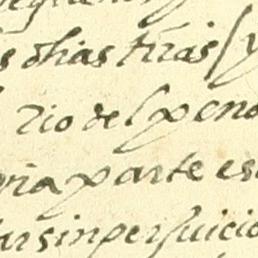 s dhas trras / y
Rio del pono
ria parte es
ars in perjuicio